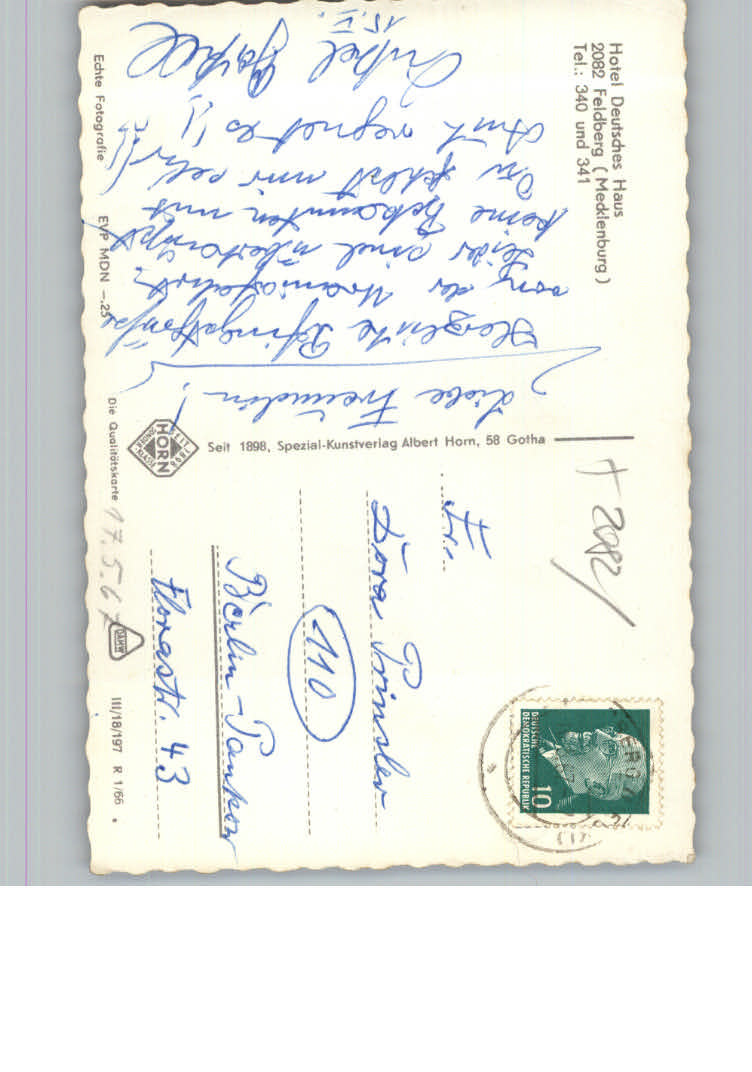 Hotel Deutsches Haus
2082 Feldberg (Mecklenburg)
Tel.: 340 und 341
Liebe Freundin!
Herzliche Pfingstgrüße
von der Urania-fahrt.
Leider sind überhaupt
keine Bekannten mit
Du fehlst mir sehr!!
Auch regnet es!!
15.V.
Echte Fotografie
EVP MDN -.25
Die Qualitätskarte
Seit 1898, Spezial-Kunstverlag Albert Horn, 58 Gotha
HORN
SEIT 1898
† 2082
Fr.
Dora Prinsler
110
Berlin-Pankow
Florastr. 43
17.5.67
III/18/197 R 1/66
DEUTSCHE
DEMOKRATISCHE REPUBLIK
10